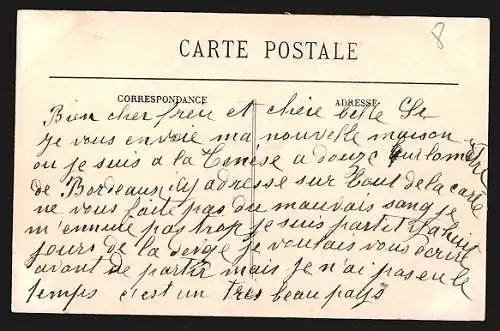 8
CARTE POSTALE
CORRESPONDANCE
ADRESSE
Bien cher freu et chère belle Se
Je vous envoie ma nouvelle maison
ou je suis a la a douze quilometre
de Bordeaux adresse sur tout de la carte
ne vous faite pas du mauvais sang je
m'ennuie pas trop je suis partet il a huit
jours de la je voulais vous écrire
avant de partir mais je n'ai pas eu le
temps c'est un tres beau pays